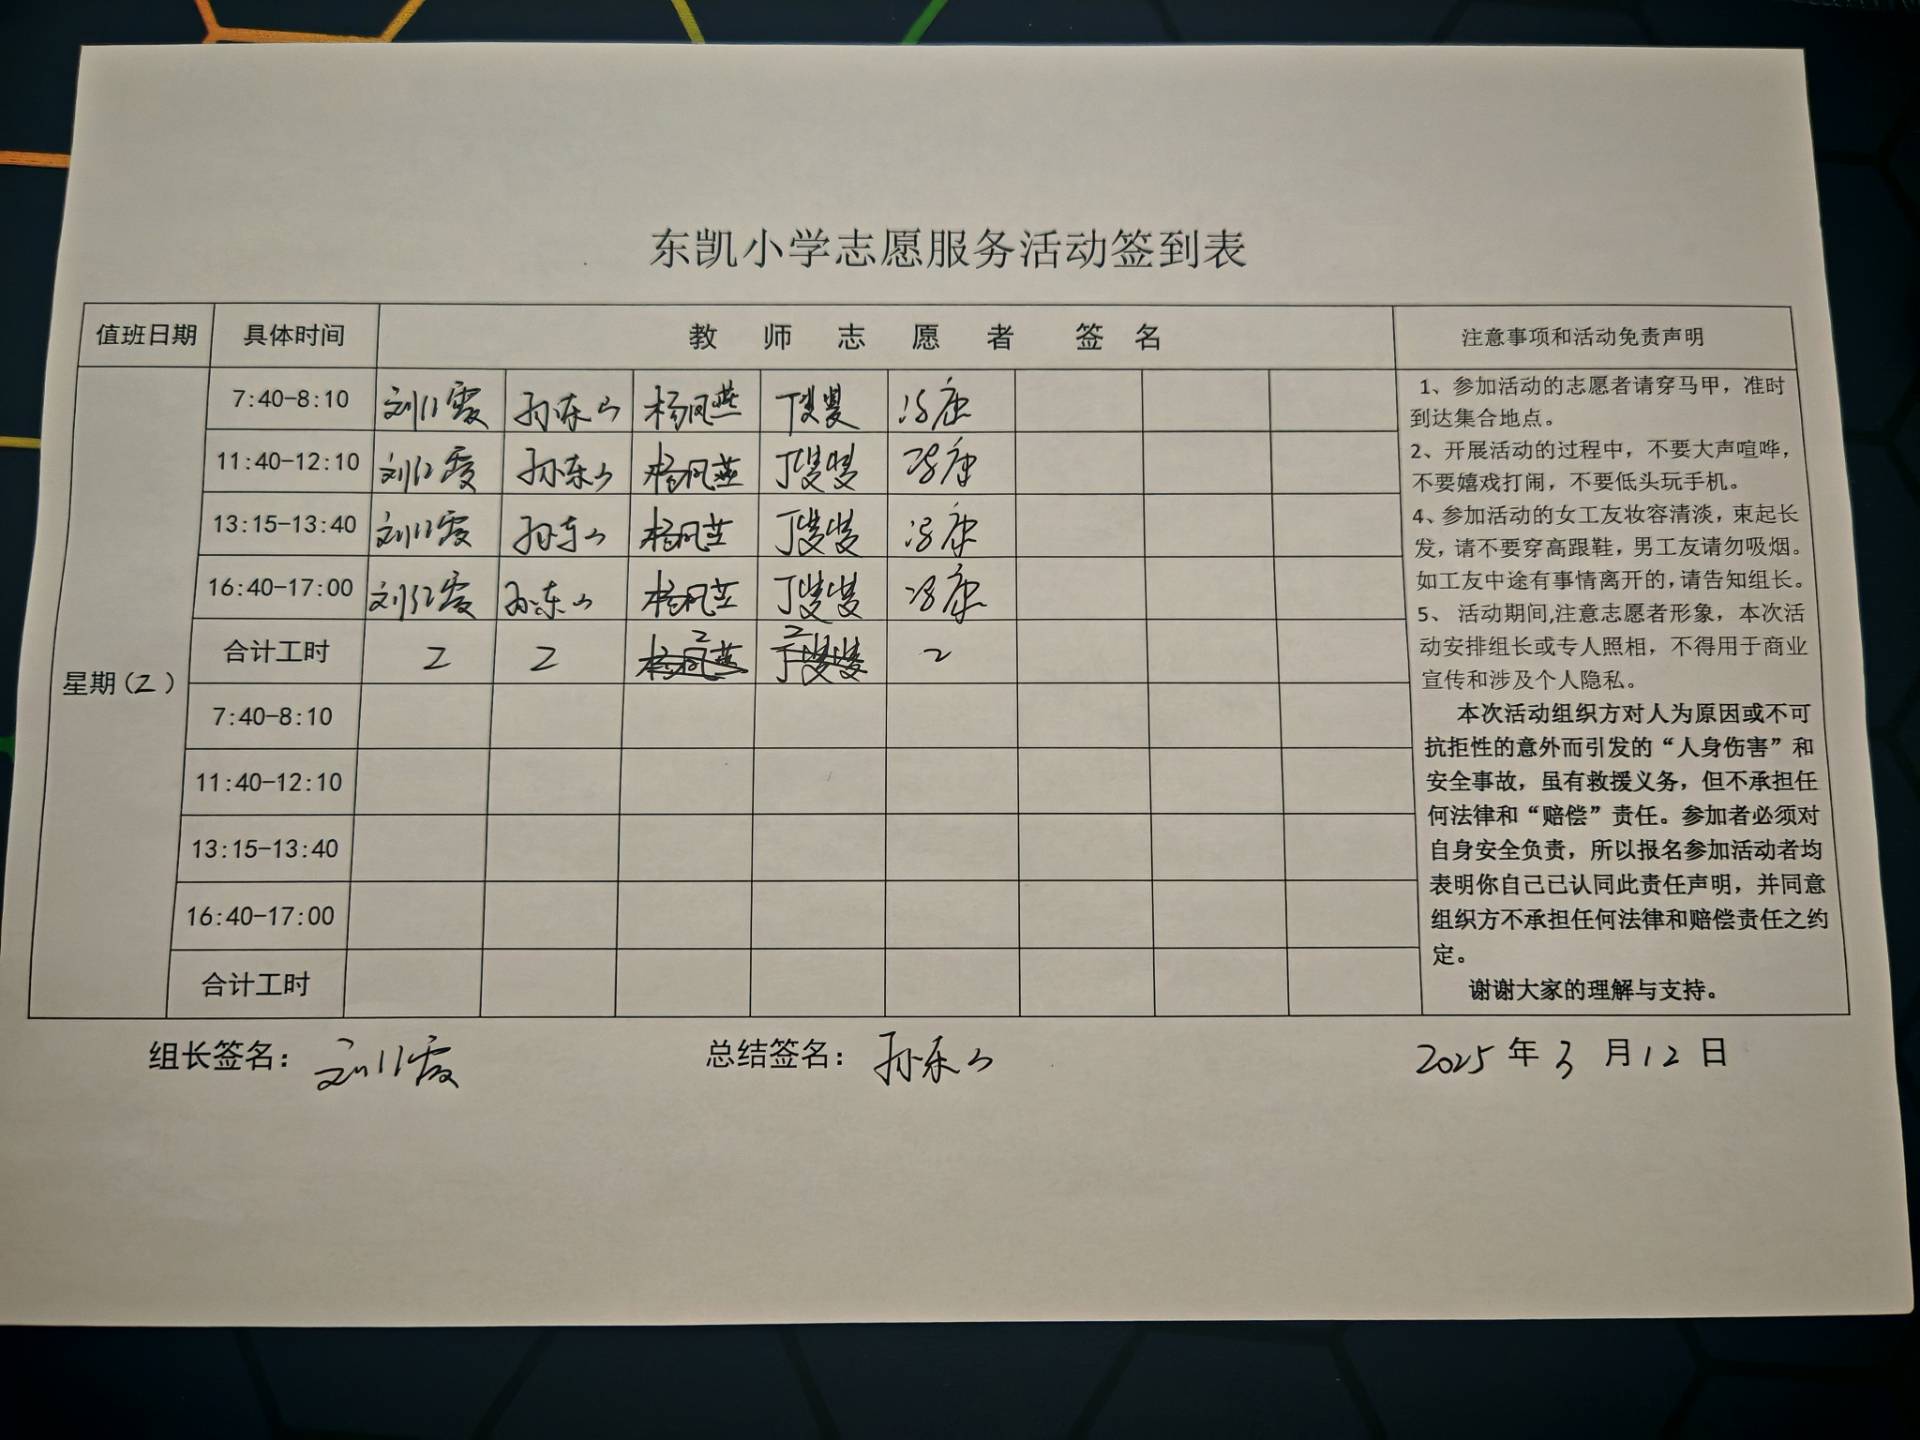 东凯小学志愿服务活动签到表
值班日期 具体时间 教师志愿者签名 注意事项和活动免责声明
星期(2)
7:40-8:10 刘红霞 孙东山 杨凤燕 丁叟叟 冯康
11:40-12:10 刘红霞 孙东山 杨凤燕 丁叟叟 冯康
13:15-13:40 刘红霞 孙东山 杨凤燕 丁叟叟 冯康
16:40-17:00 刘红霞 孙东山 杨凤燕 丁叟叟 冯康
合计工时 2 2 2 2 2
7:40-8:10
11:40-12:10
13:15-13:40
16:40-17:00
合计工时
1、参加活动的志愿者请穿马甲，准时
到达集合地点。
2、开展活动的过程中，不要大声喧哗，
不要嬉戏打闹，不要低头玩手机。
4、参加活动的女工友妆容清淡，束起长
发，请不要穿高跟鞋，男工友请勿吸烟。
如工友中途有事情离开的，请告知组长。
5、 活动期间,注意志愿者形象，本次活
动安排组长或专人照相，不得用于商业
宣传和涉及个人隐私。
本次活动组织方对人为原因或不可
抗拒性的意外而引发的“人身伤害”和
安全事故，虽有救援义务，但不承担任
何法律和“赔偿”责任。参加者必须对
自身安全负责，所以报名参加活动者均
表明你自己已认同此责任声明，并同意
组织方不承担任何法律和赔偿责任之约
定。
谢谢大家的理解与支持。
组长签名：刘红霞 总结签名：孙东山 2025年3月12日